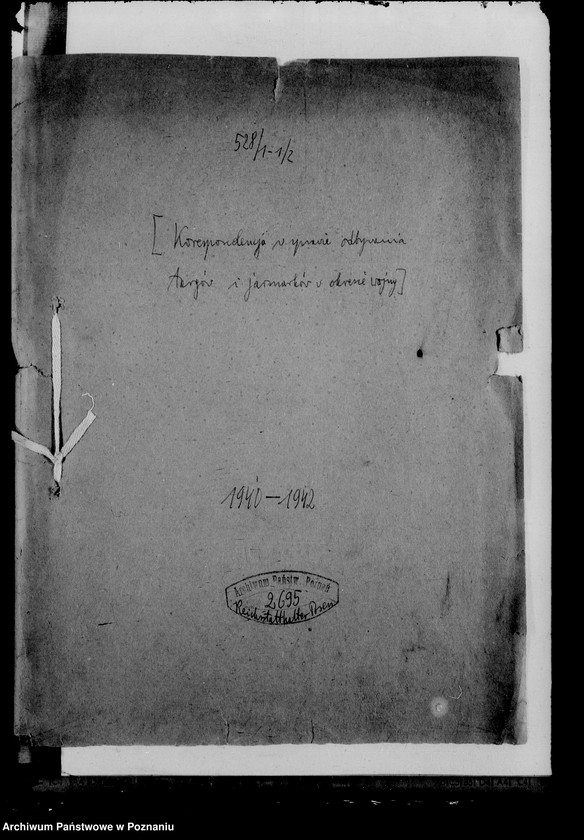 528/1-1/2
[Korespondencja w sprawie odbywania
targów i jarmarków w okresie wojny]
1940—1942
Archiwum Państw. Poznań
2695
Reichsstatthalter Posen
Archiwum Państwowe w Poznaniu